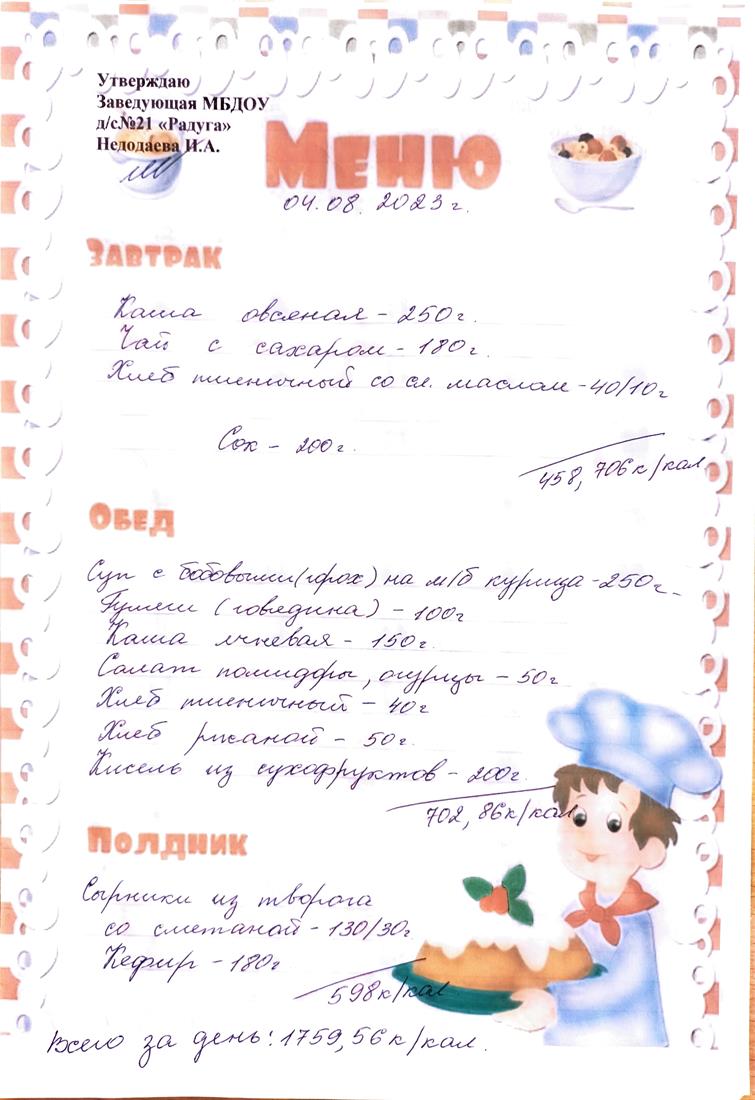 Утверждаю
Заведующая МБДОУ
д/с№21 «Радуга»
Недодаева И.А.
Меню
04.08.2023г.
Завтрак
Каша овсяная - 250г.
Чай с сахаром - 180г.
Хлеб пшеничный со сл. маслом - 40/10г
Сок - 200г.
458,706к/кал
Обед
Суп с бобовыми (горох) на м/б курица - 250г.
Гуляш (говядина) - 100г
Каша ячневая - 150г.
Салат помидоры, огурцы - 50г
Хлеб пшеничный - 40г
Хлеб ржаной - 50г.
Кисель из сухофруктов - 200г.
702,86к/кал
Полдник
Сырники из творога
со сметаной - 130/30г
Кефир - 180г
598к/кал
Всего за день: 1759,56к/кал.